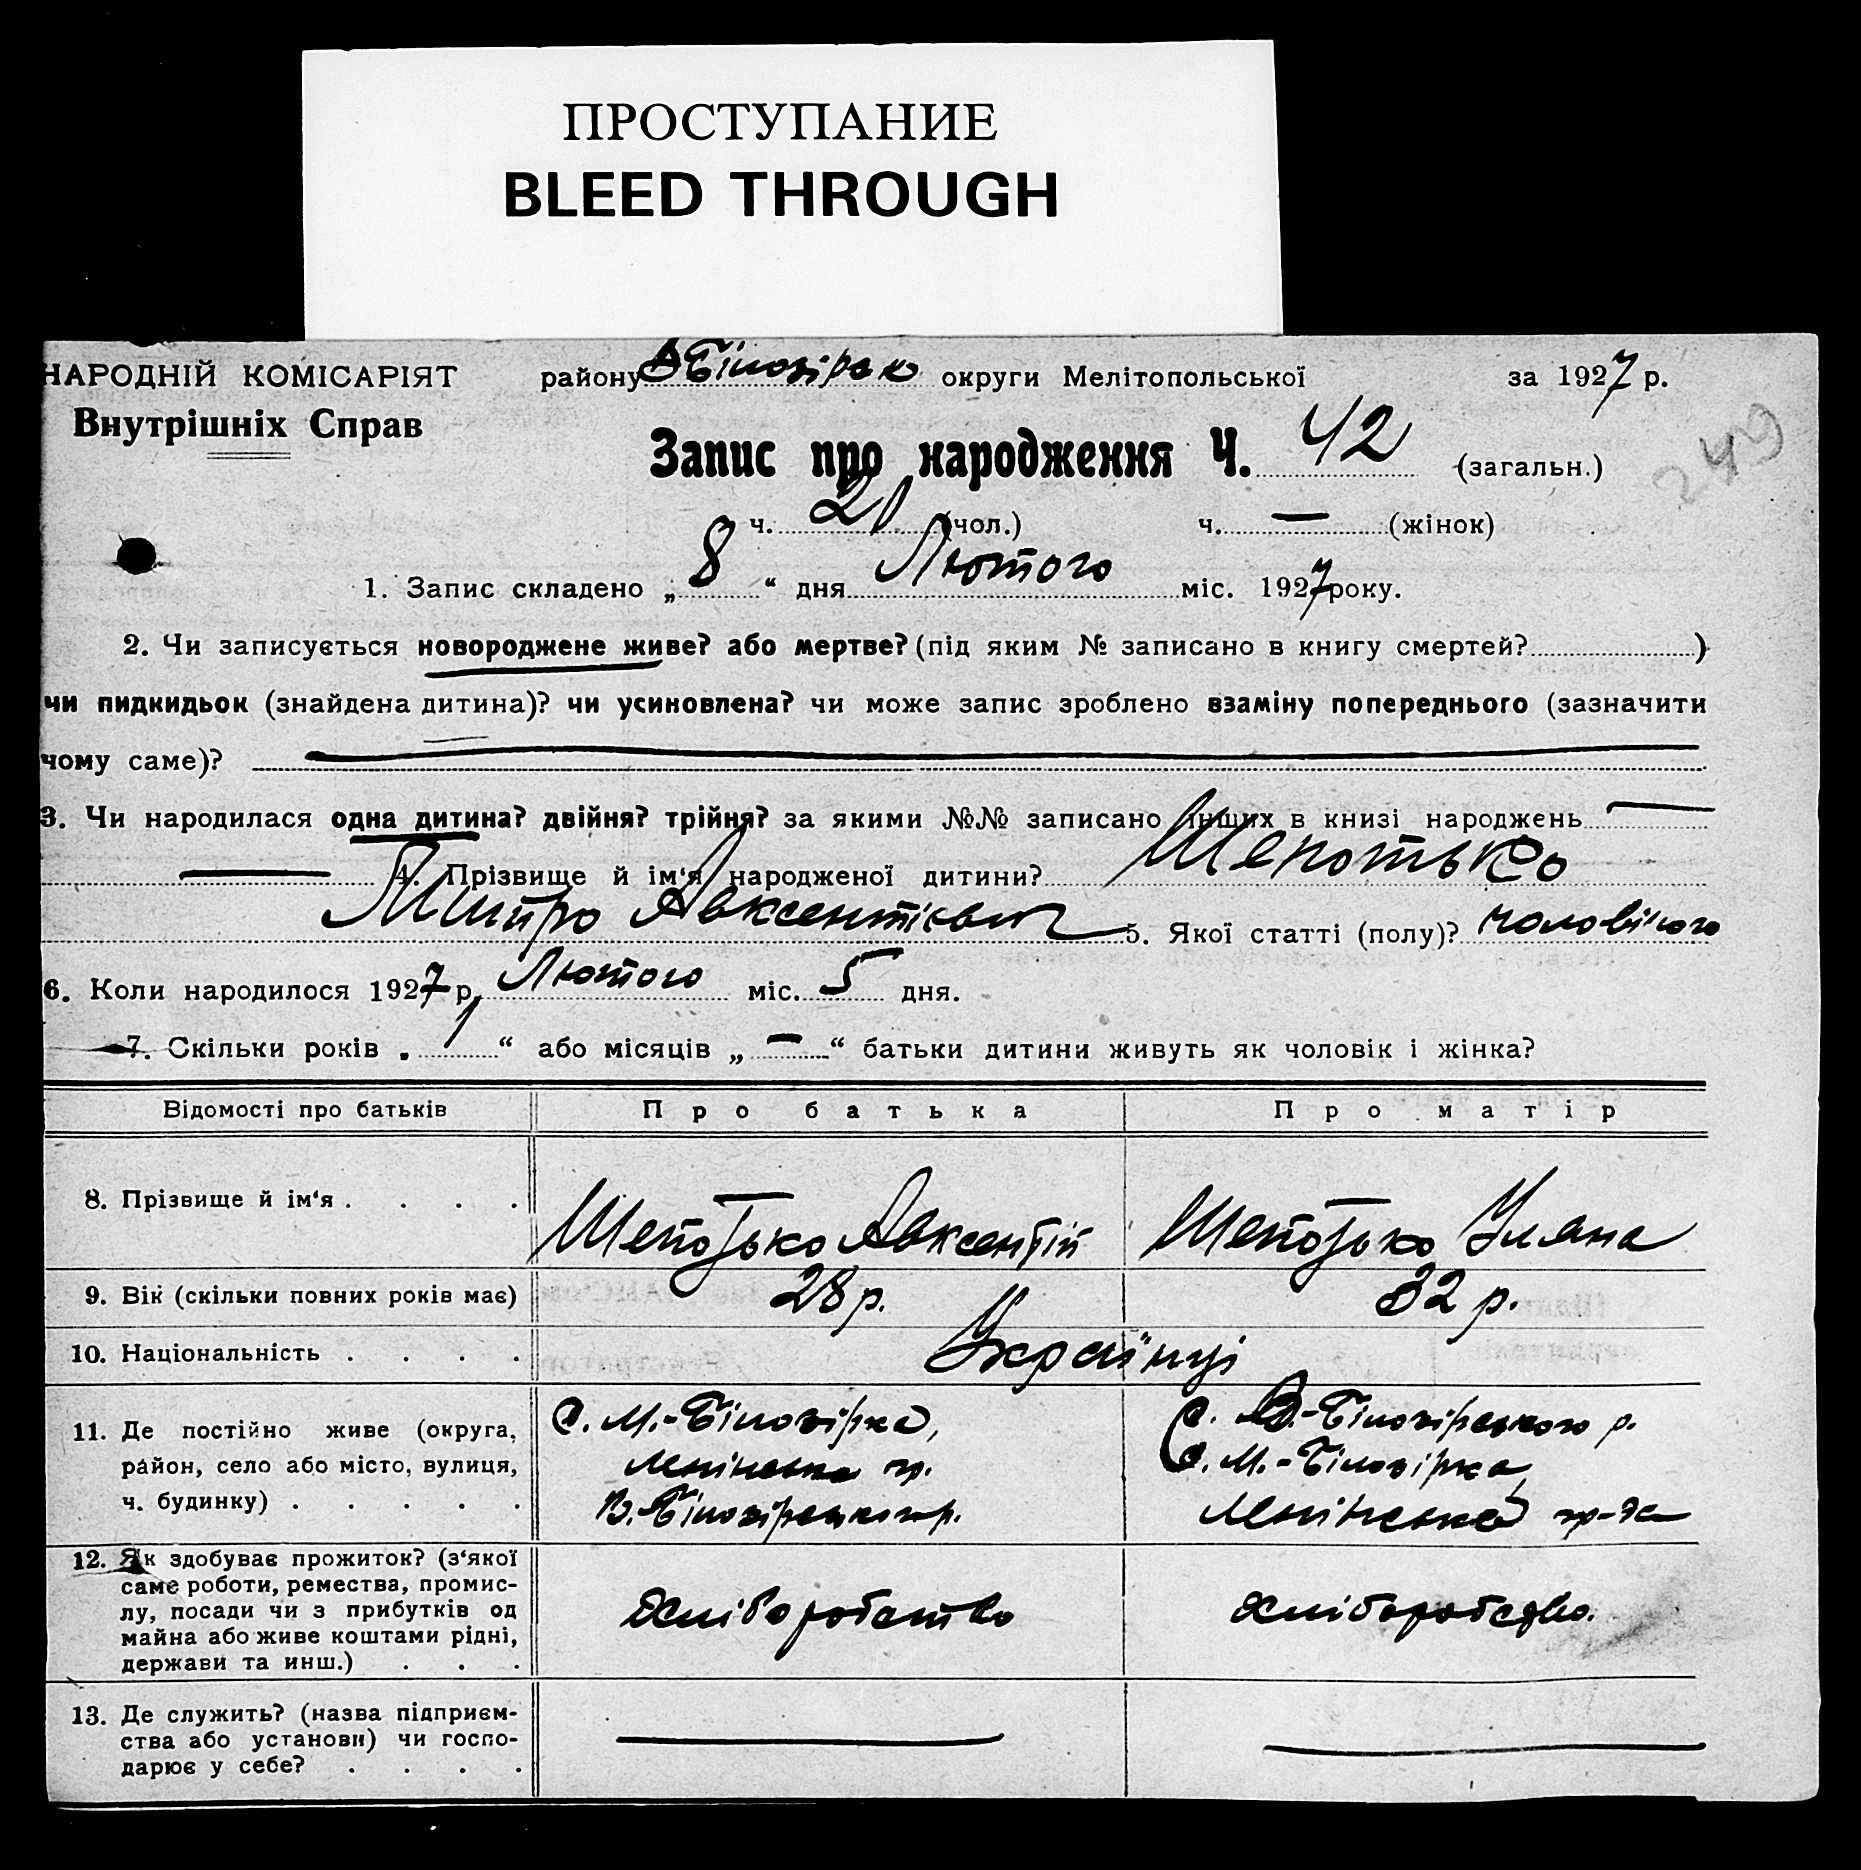 ПРОСТУПАНИЕ
BLEED THROUGH
НАРОДНІЙ КОМІСАРІЯТ району В Білозірсько округи Мелітопольської за 1927 р.
Внутрішніх Справ
Запис про народження Ч. 42 (загальн.)
249
ч. 21 (чол.) ч. — (жінок)
1. Запис складено „ 8 “ дня Лютого міс. 1927 року.
2. Чи записується новороджене живе? або мертве? (під яким № записано в книгу смертей? )
чи пидкидьок (знайдена дитина)? чи усиновлена? чи може запис зроблено взаміну попереднього (зазначити
чому саме)? —
3. Чи народилася одна дитина? двійня? трійня? за якими №№ записано инших в книзі народжень —
— 4. Прізвище й ім‘я народженої дитини? Шепотько
Дмитро Авксентієвич 5. Якої статті (полу)? чоловічого
6. Коли народилося 1927 р. Лютого міс. 5 дня.
7. Скільки років „ 1 “ або місяців „ — “ батьки дитини живуть як чоловік і жінка?
Відомості про батьків Про батька Про матір
8. Прізвище й ім‘я . . . . Шепотько Авксентій Шепотько Уляна
9. Вік (скільки повних років має) 28 р. 32 р.
10. Національність . . . . Українці
11. Де постійно живе (округа, с. М.-Білозірка, с. В.-Білозірського р.
район, село або місто, вулиця, Ленінська гр. с. М.-Білозірка,
ч. будинку) . . . . . В. Білозірського р. Ленінська гр-да
12. Як здобуває прожиток? (з‘якої
саме роботи, ремества, промис-
лу, посади чи з прибутків од хліборобство хліборобство.
майна або живе коштами рідні,
держави та инш.) . . .
13. Де служить? (назва підприєм-
ства або установи) чи госпо- — —
дарює у себе? . . . .